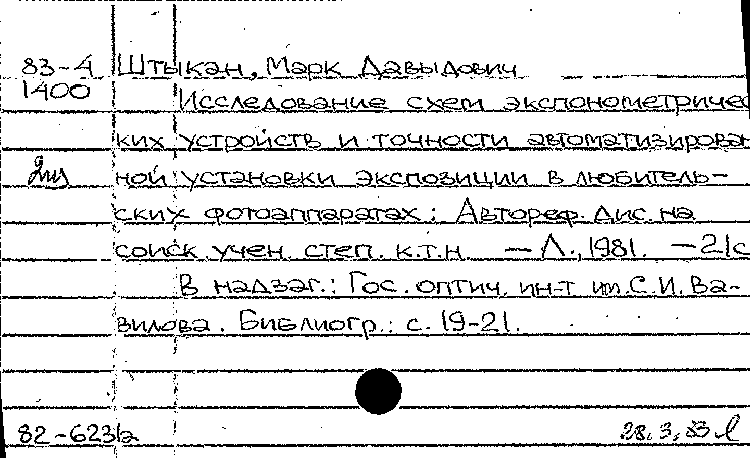 83-4 Штыкан, Марк Давыдович
1400 Исследование схем экспонометричес
ких устройств и точности автоматизирован
ной установки экспозиции в любитель-
ских фотоаппаратах: Автореф. дис. на
соиск. учен. степ. к.т.н. — Л., 1981. — 21с
В надзаг.: Гос. оптич. ин-т им. С.И. Ва-
вилова. Библиогр.: с. 19-21.
82-62312 28.3.83